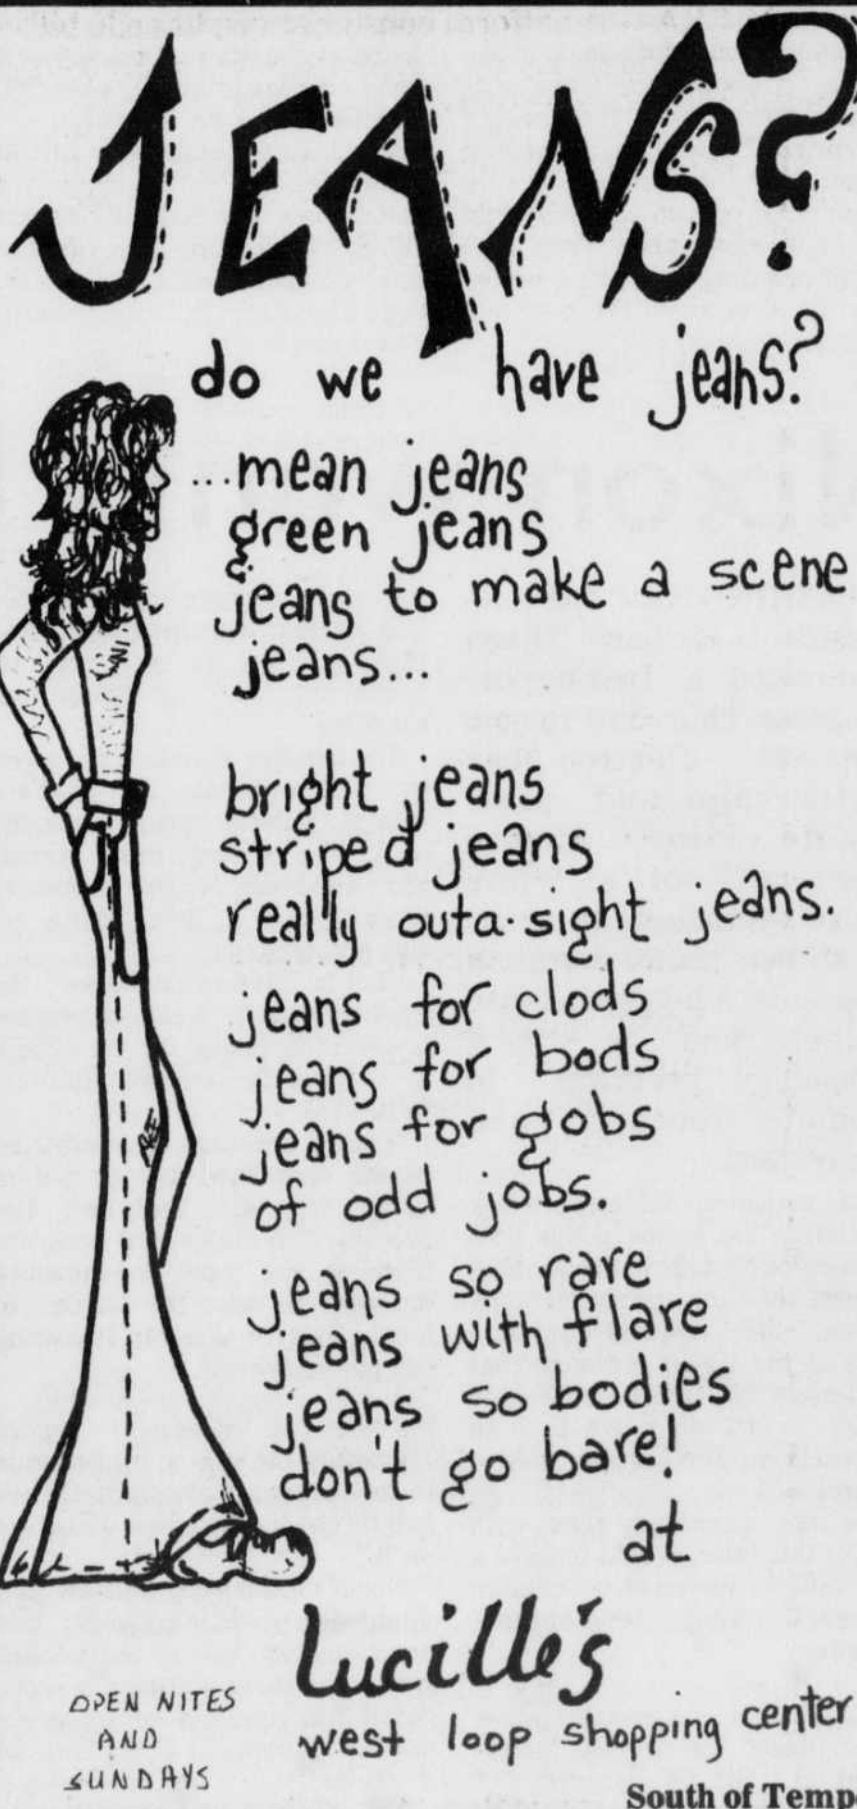 JEANS?
do we have jeans?
...mean jeans
green jeans
jeans to make a scene
jeans...
bright jeans
striped jeans
really outa-sight jeans.
jeans for clods
jeans for bods
jeans for gobs
of odd jobs.
jeans so rare
jeans with flare
jeans so bodies
don't go bare!
at
Lucille's
OPEN NITES
AND
SUNDAYS
west loop shopping center
South of Temp